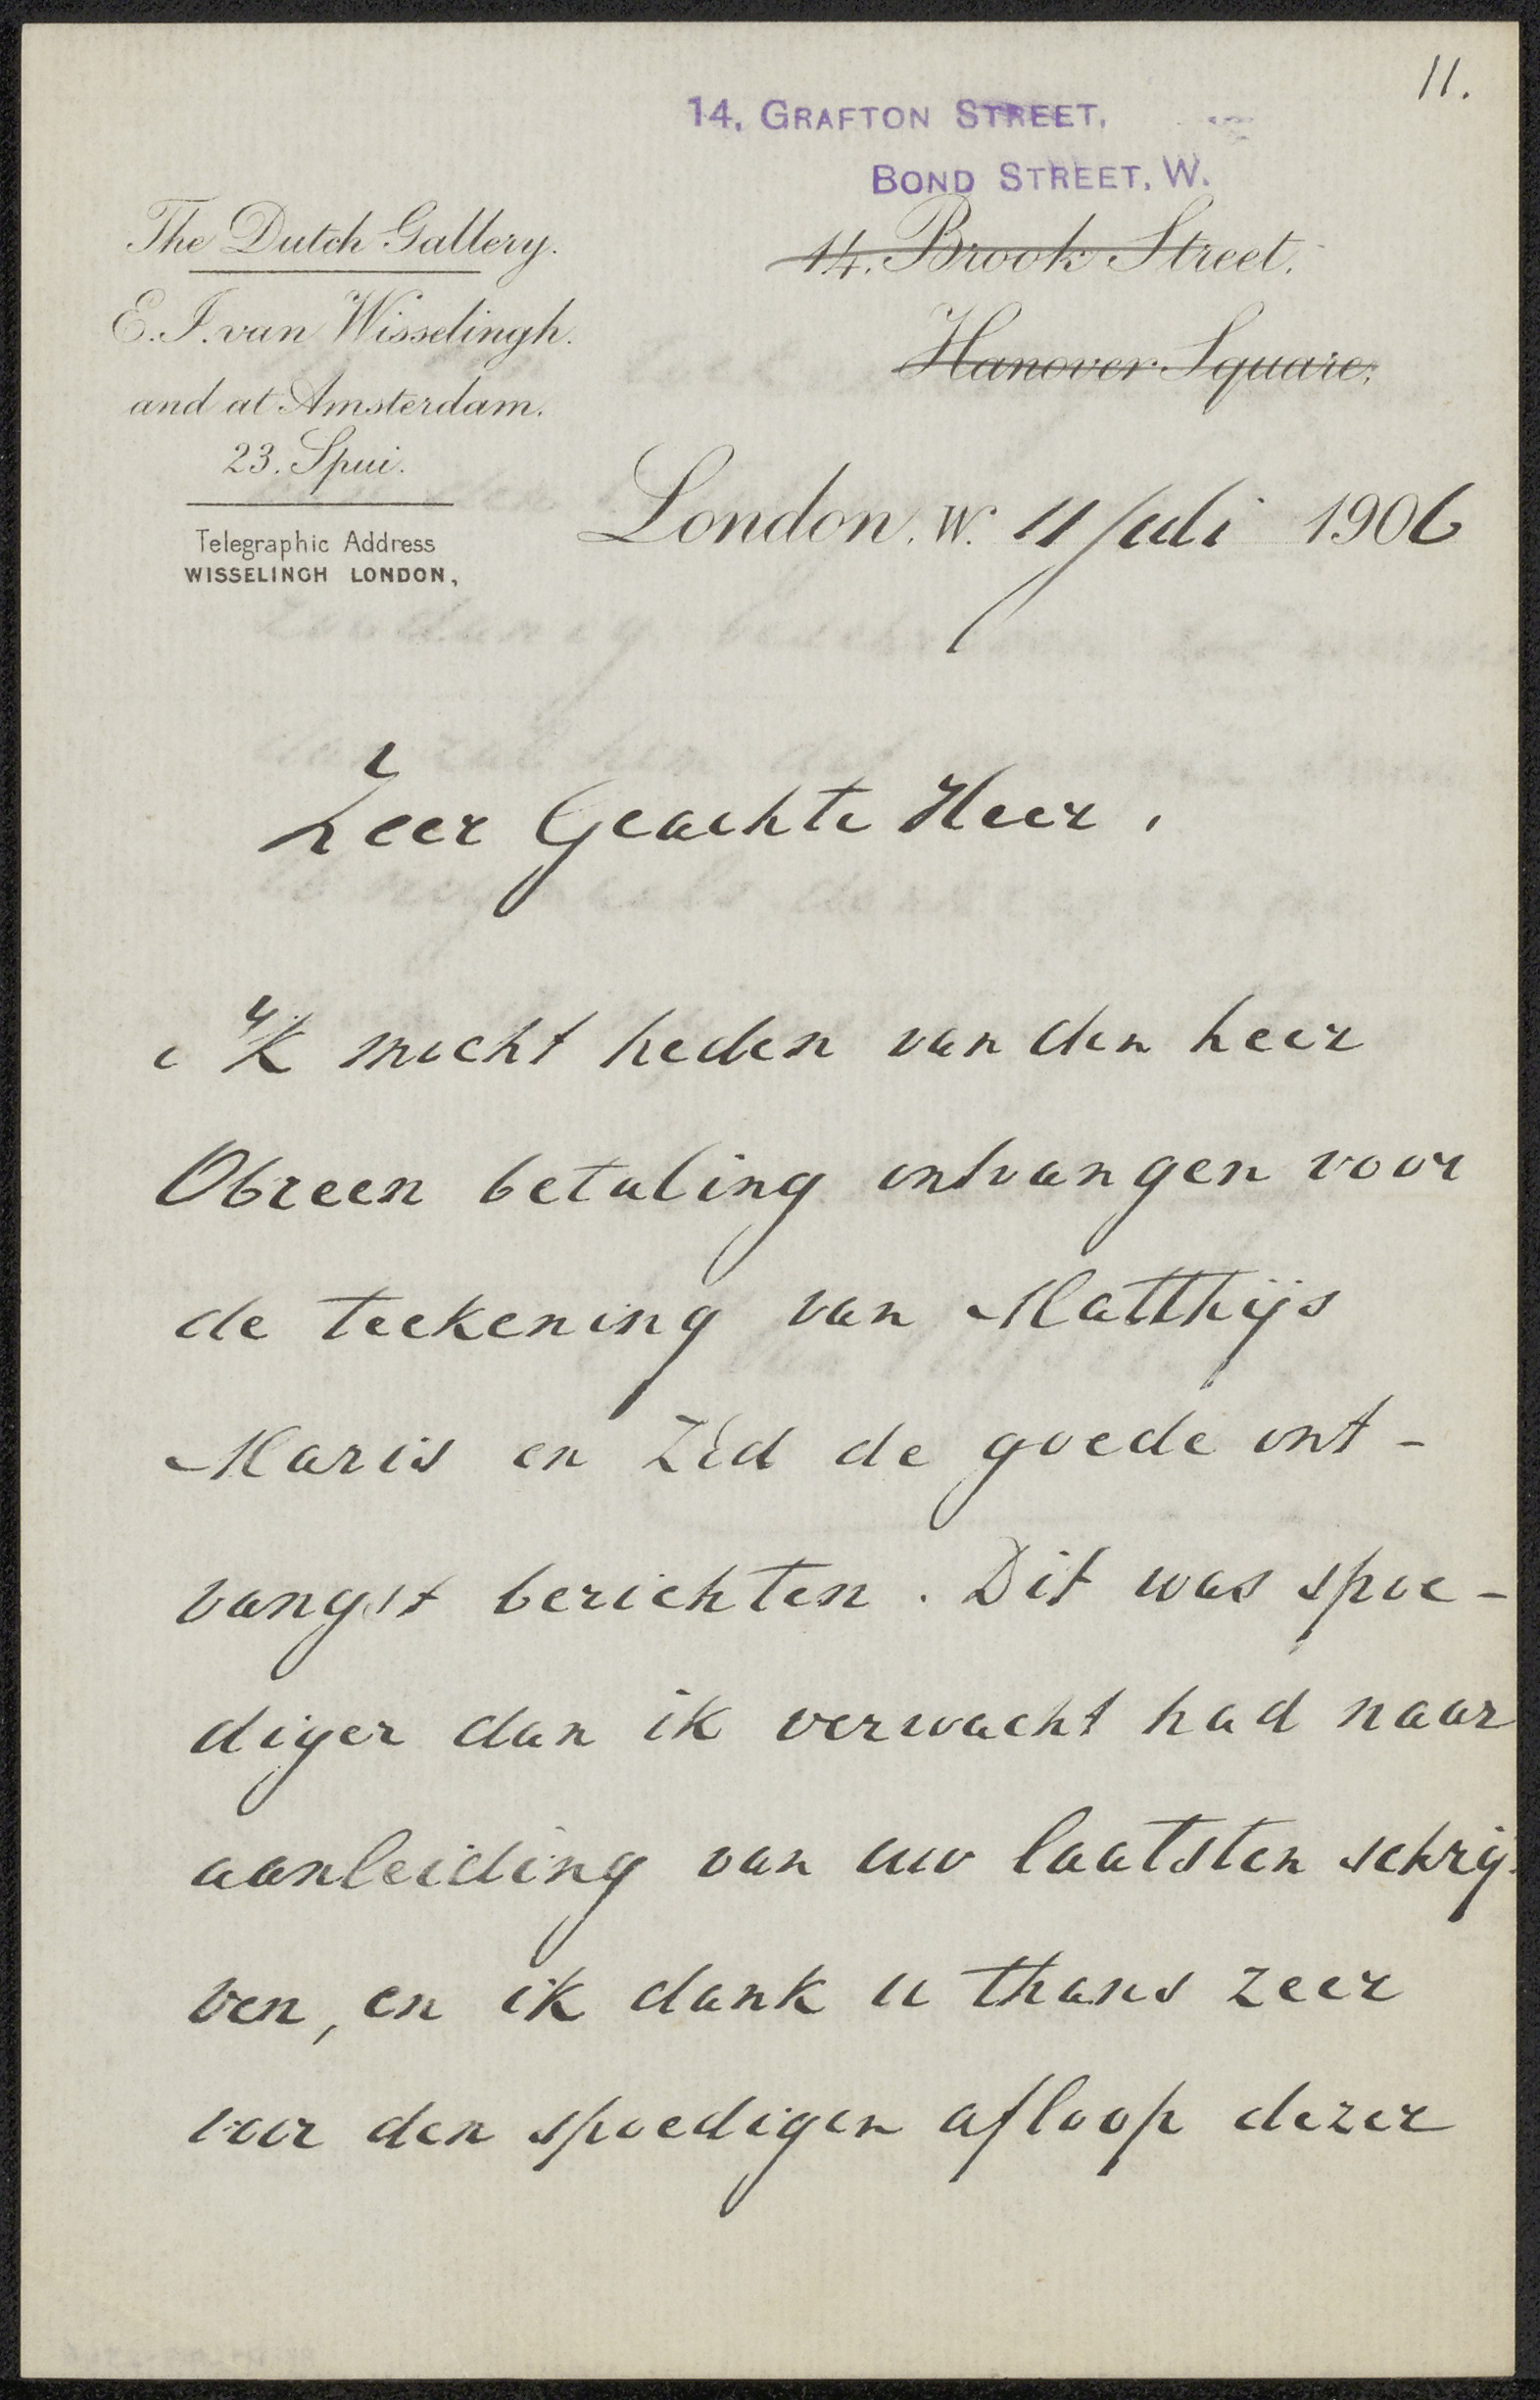 11.
14, GRAFTON STREET,
BOND STREET, W.
The Dutch Gallery.
E. J. van Wisselingh.
and at Amsterdam.
23. Spui.
Telegraphic Address
WISSELINGH LONDON,
14. Brook Street.
Hanover Square.
London. W. 11 Juli 1906
Zeer Geachte Heer,
ik mocht heden van den heer
Obreen betaling ontvangen voor
de teekening van Matthijs
Maris en Zed de goede ont-
vangst berichten. Dit was spoe-
diger dan ik verwacht had naar
aanleiding van uw laatsten schrij-
ven, en ik dank u thans zeer
voor den spoedigen afloop dezer